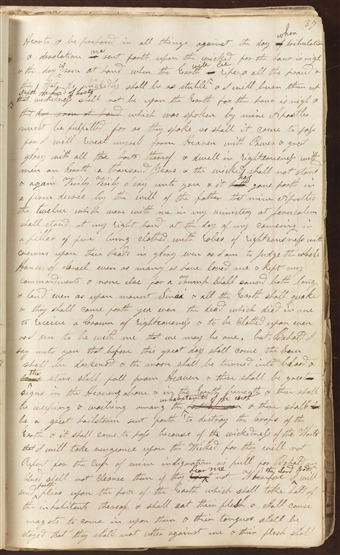 37
when
Hearts & be prepared in all things against the day of tribulation
& desolation are sent forth upon the wicked for the hour is nigh
& the day soon at hand when the Earth is ripe & all the proud &
they that do wickedly shall be as stubble & I will burn them up
saith the Lord of hosts
that wickedness shall not be upon the Earth for the hour is nigh &
that which was spoken by mine Apostles
must be fulfilled for as they spoke so shall it come to pass
for I will reveal myself from Heaven with Power & great
glory with all the hosts thereof & dwell in righteousness with
men on Earth a thousand years & the wicked shall not stand
& again Verily Verily I say unto you & it hath gone forth in
a firm decree by the will of the father that mine Apostles
the twelve which were with me in my ministry at Jerusalem
shall stand at my right hand at the day of my coming in
a pillar of fire being clothed with robes of righteousness with
crowns upon their heads in glory even as I am to judge the whole
House of Israel even as many as have loved me & kept my
commandments & none else for a trump shall sound both long
& loud even as upon mount Sinai & all the Earth shall quake
& they shall come forth yea even the dead which died in me
to receive a crown of righteousness & to be clothed upon even
as I am to be with me that we may be one but Behold I
say unto you that before this great day shall come the Sun
shall be darkened & the moon shall be turned into blood &
the stars shall fall from Heaven & there shall be greater
signs in Heaven above & in the Earth beneath & there shall
be weeping & wailing among the & there shall
inhabitants of the earth
be a great hailstorm sent forth to destroy the crops of the
Earth & it shall come to pass because of the wickedness of the World
that I will take vengeance upon the Wicked for they will not
Repent for the cup of mine indignation is full for Behold
my blood shall not cleanse them if they hear me not Wherefore I will
send forth flies upon the face of the Earth which shall take hold of
the inhabitants thereof & shall eat their flesh & shall cause
magots to come in upon them & their tongues shall be
stayed that they shall not utter against me & their flesh shall